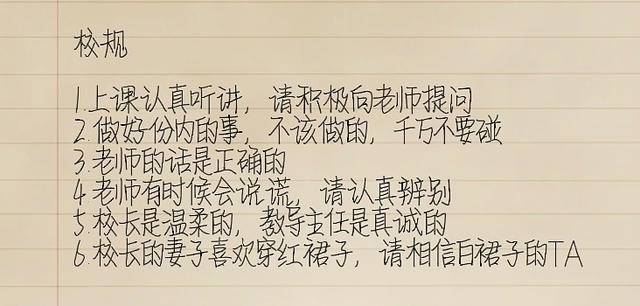 校规
1.上课认真听讲，请积极向老师提问
2.做好份内的事，不该做的，千万不要碰
3.老师的话是正确的
4.老师有时候会说谎，请认真辨别
5.校长是温柔的，教导主任是真诚的
6.校长的妻子喜欢穿红裙子，请相信白裙子的TA